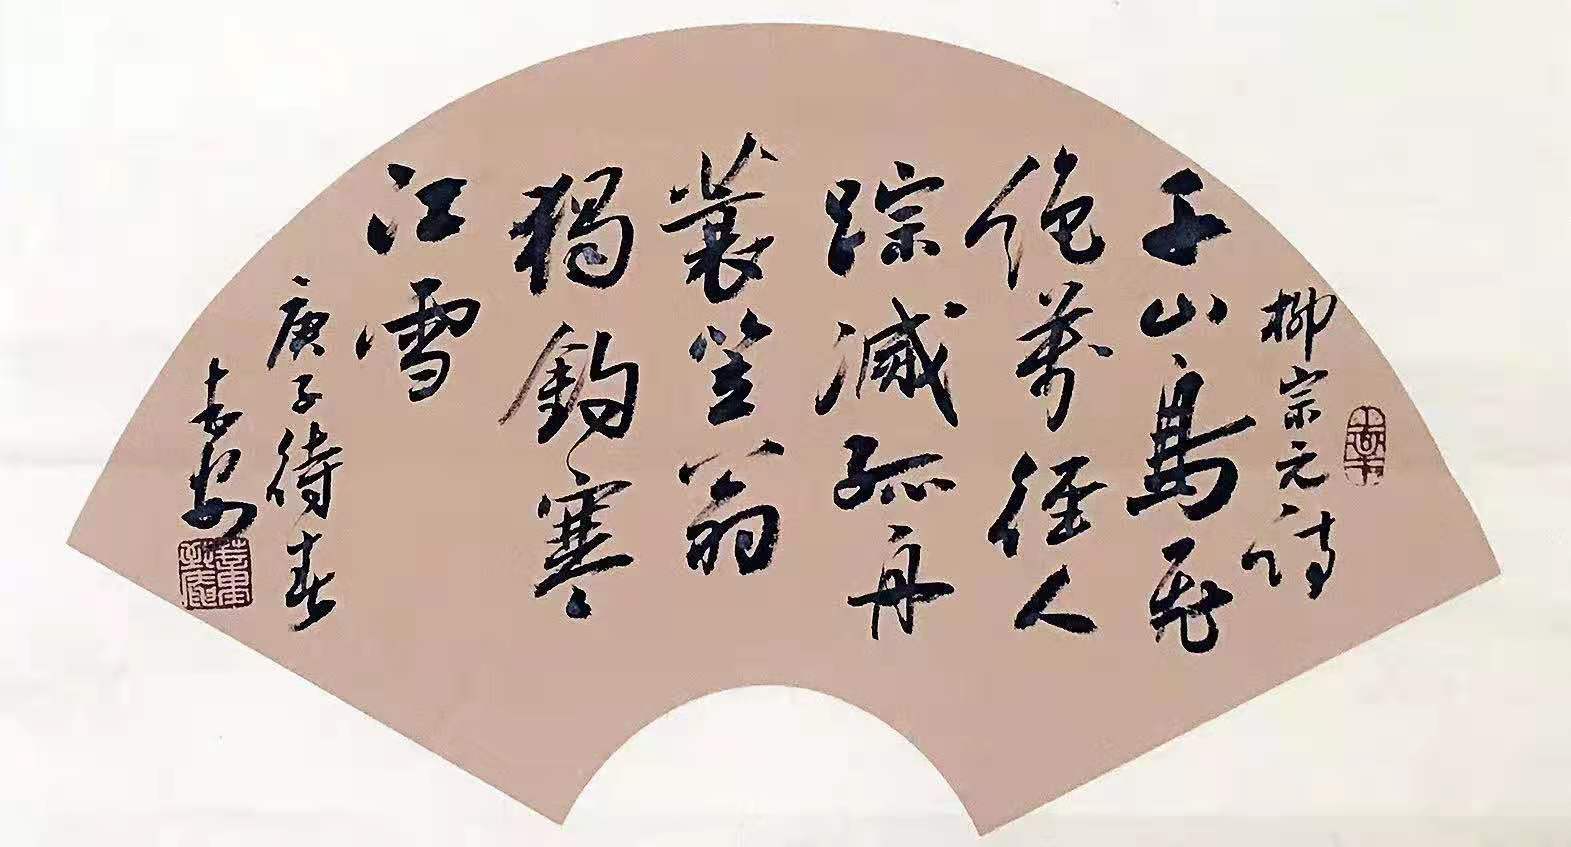 柳宗元詩
千山鳥飛
絶萬徑人
踪滅孤舟
蓑笠翁
獨釣寒
江雪
庚子待春